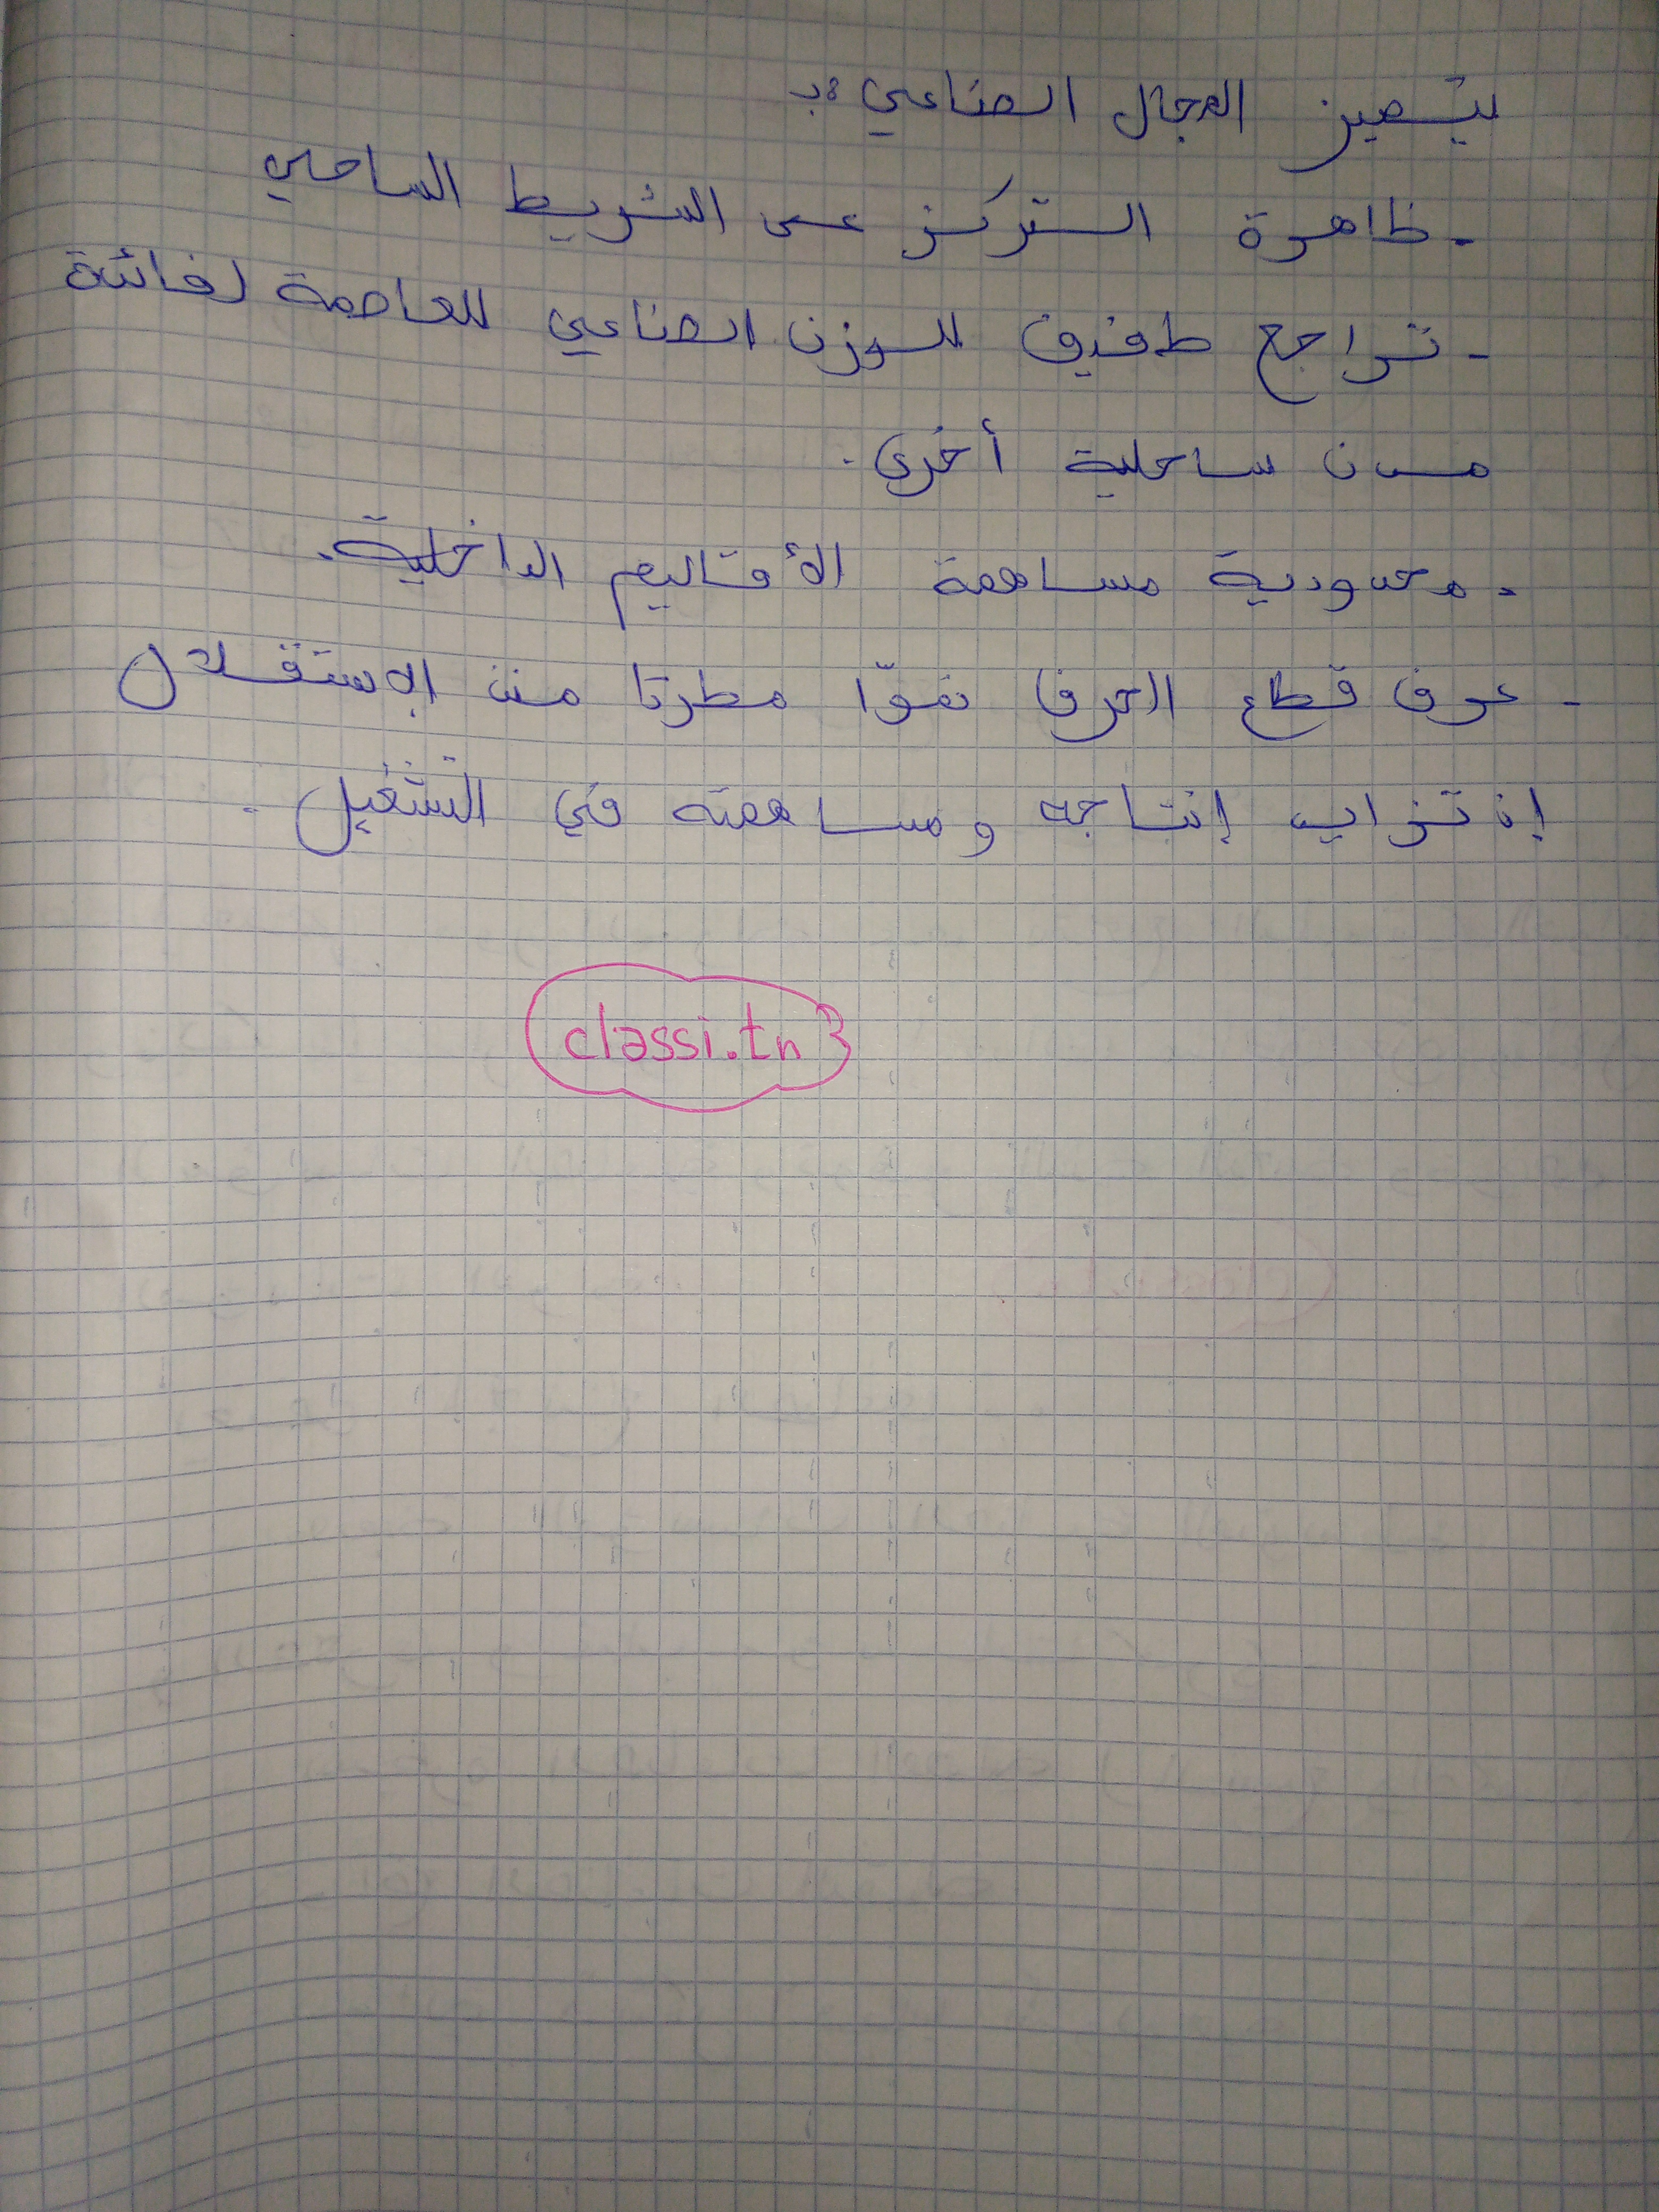 يتميز المجال الصناعي بـ:
- ظاهرة التركز على الشريط الساحلي
- تراجع طفيف للوزن الصناعي للعاصمة لفائدة
مدن ساحلية أخرى.
- محدودية مساهمة الأقاليم الداخلية.
- عرف قطاع الحرف نموّا مطردا منذ الإستقلال
إذ تزايد إنتاجه ومساهمته في التشغيل.
classi.tn